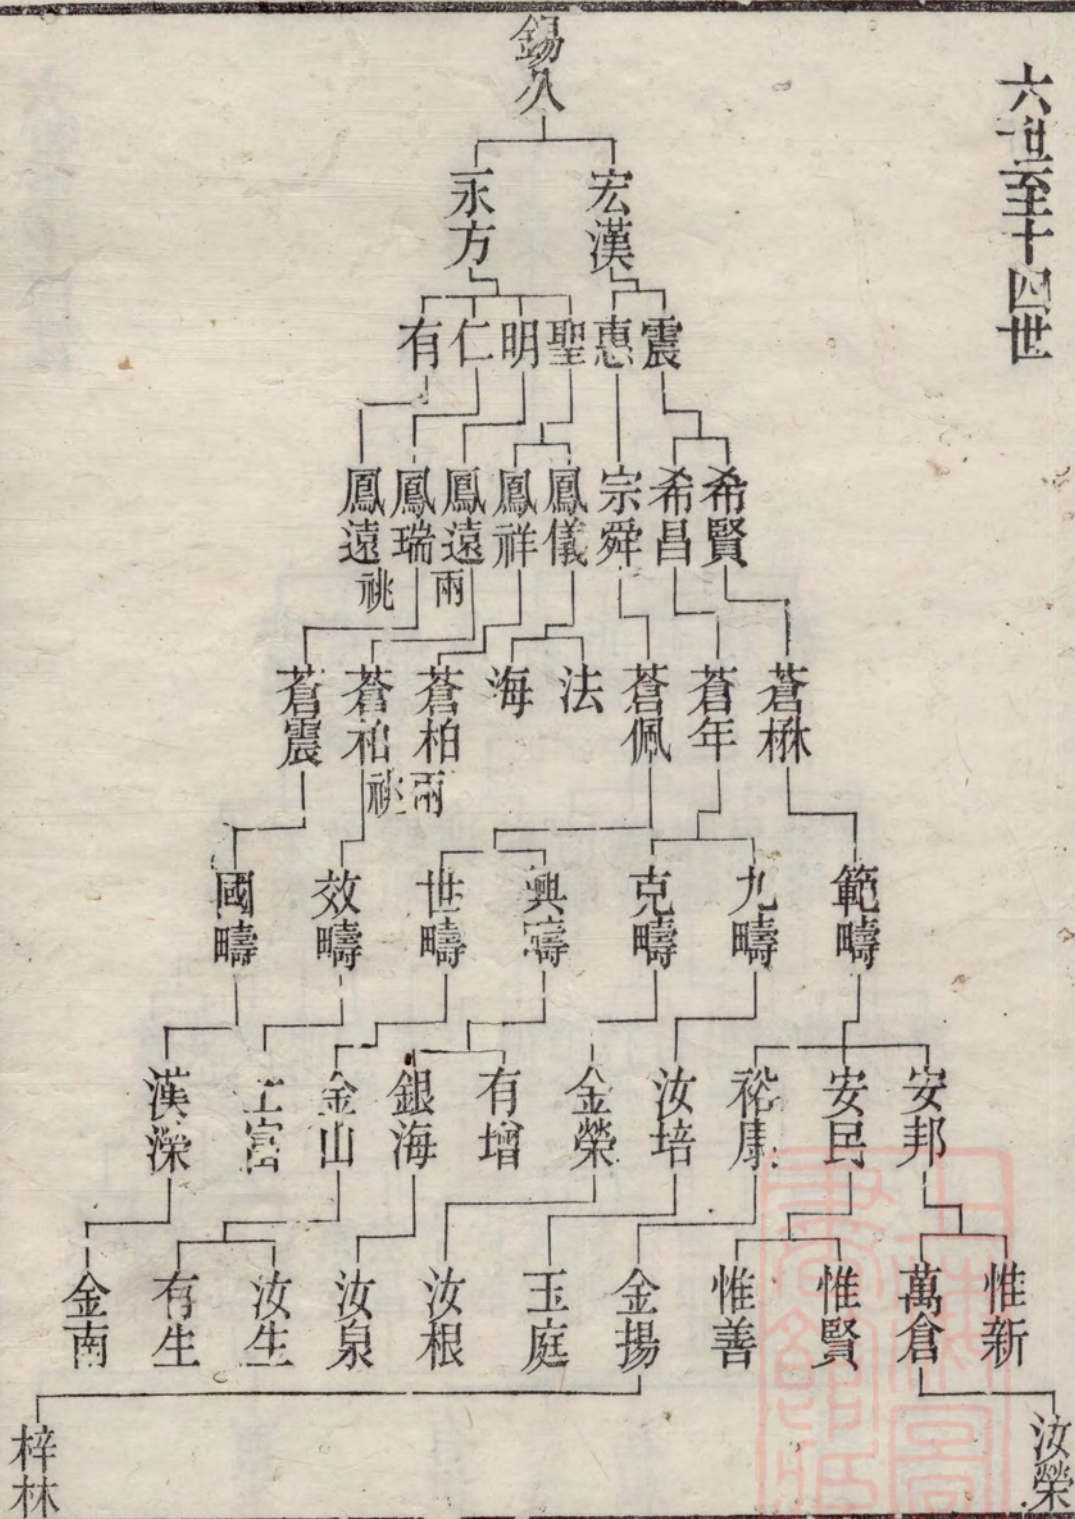 六世至十四世
錫久
宏漢 永方
震 惠 聖 明 仁 有
希賢 希昌 宗舜 鳳儀 鳳祥 鳳遠兩 鳳瑞 鳳遠祧
蒼楙 蒼年 蒼佩 法 海 蒼柏兩 蒼柏祧 蒼震
範疇 九疇 克疇 興疇 世疇 效疇 國疇
安邦 安民 裕康 汝培 金榮 有增 銀海 金山 漢濚
惟新 萬倉 惟賢 惟善 金揚 玉庭 汝根 汝泉 汝生 有生 金南
汝榮 梓林